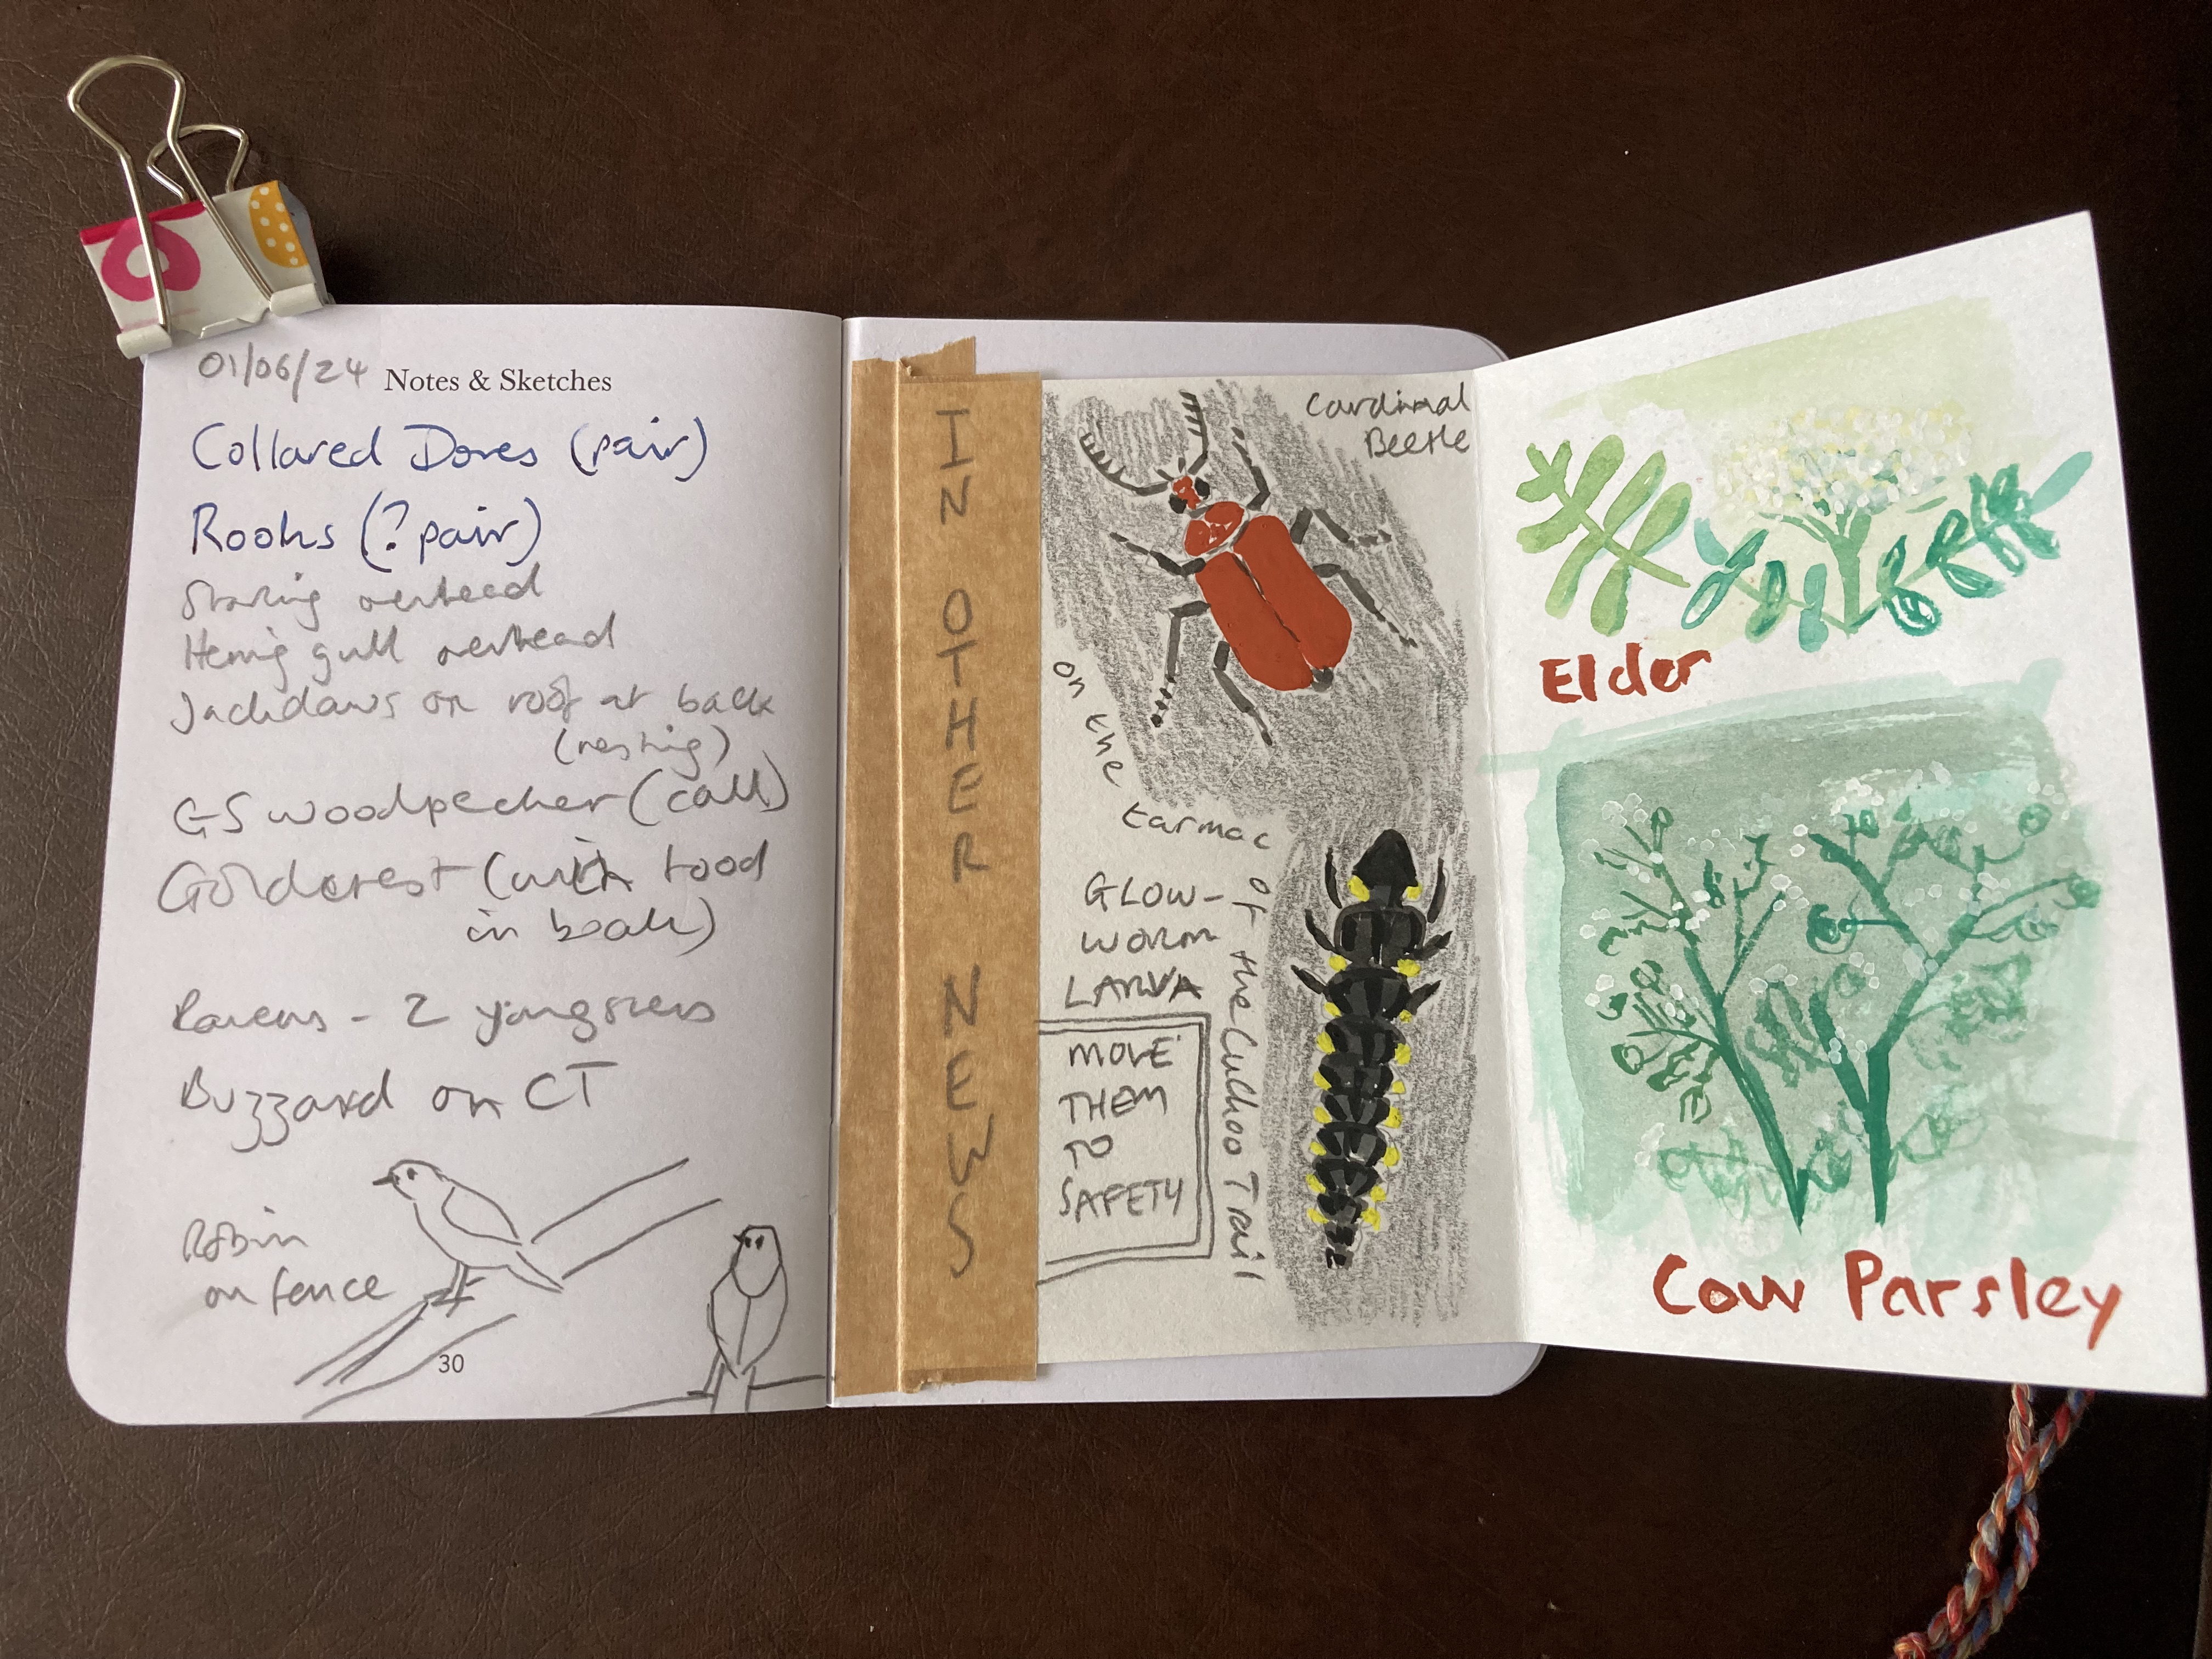 01/06/24
Notes & Sketches
Collared Doves (pair)
Rooks (? pair)
Starling overhead
Herring gull overhead
Jackdaws on roof at back
(nesting)
GS woodpecker (call)
Goldcrest (with food
in beak)
Ravens - 2 youngsters
Buzzard on CT
Robin
on fence
30
IN OTHER NEWS
Cardinal
Beetle
on the tarmac of the Cuckoo Trail
GLOW-
WORM
LARVA
MOVE
THEM
TO
SAFETY
Elder
Cow Parsley